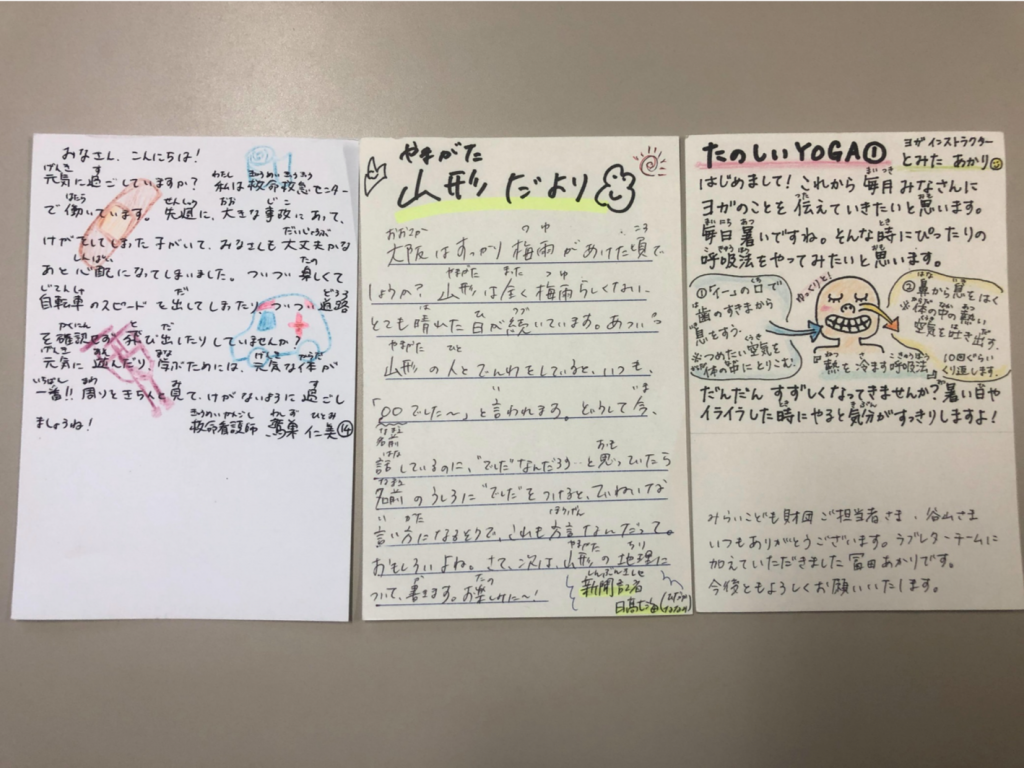 みなさん、こんにちは!
元気に過ごしていますか? 私は救命救急センター
で働いています。先週に、大きな事故にあって、
けがをしてしまった子がいて、みなさんも大丈夫かな
あと心配になってしまいました。ついつい楽しくて
自転車のスピードを出してしまったり、ついつい道路
を確認せず飛び出したりしていませんか?
元気に遊んだり、学ぶためには、元気な体が
一番!! 周りをきちんと見て、けがないように過ごし
ましょうね!
救命看護師 仁美⑭
やまがた
山形だより
大阪はすっかり梅雨があけた頃で
しょうか? 山形は全く梅雨らしくないに
とても晴れた日が続いています。あつい
山形の人とでんわをしていると、いつも、
「〇〇でした〜」と言われます。どうして今、
話しているのに、"でした"なんだろう…と思っていたら
名前のうしろに"でした"をつけると、ていねいな
言い方になるそうで、これも方言なんだって。
おもしろいよね。さて、次は、山形の地理に
ついて、書きます。お楽しみに〜!
新聞記者
たのしいYOGA①
ヨガインストラクター
とみた あかり
はじめまして!これから毎月みなさんに
ヨガのことを伝えていきたいと思います。
毎日暑いですね。そんな時にぴったりの
呼吸法をやってみたいと思います。
①「イー」の口で
歯のすきまから
息をすう.
※つめたい空気を
体の中にとりこむ.
ゆっくりと!
②鼻から息をはく
※体の中の熱い
空気を吐き出す.
10回ぐらい
くり返します.
『熱を冷ます呼吸法』
だんだんすずしくなってきませんか?暑い日や
イライラした時にやると気分がすっきりしますよ!
みらいこども財団ご担当者さま、谷山さま
いつもありがとうございます。ラブレターチームに
加えていただきました冨田あかりです。
今後ともよろしくお願いいたします。